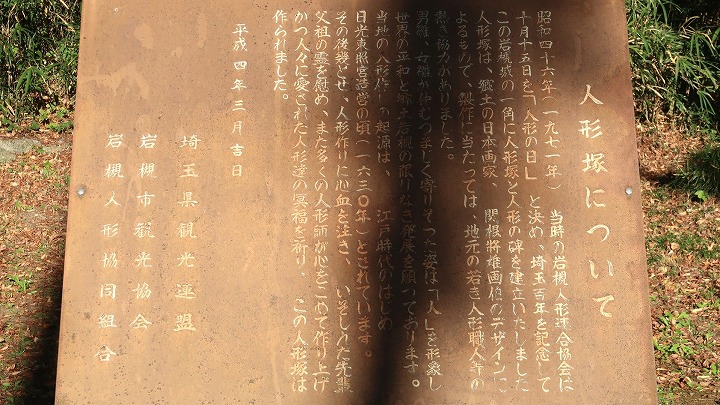 人形塚について
昭和四十六年(一九七一年) 当時の岩槻人形連合協会は
十月十五日を「人形の日」と決め、埼玉百年を記念して
この岩槻城の一角に人形塚と人形の碑を建立いたしました
人形塚は、郷土の日本画家、 関根将雄画伯のデザインに
よるもので、製作に当たっては、地元の若き人形職人等の
熱き協力がありました。
男雛、女雛が仲むつまじく寄りそった姿は「人」を形象し
世界の平和と郷土岩槻の限りなき発展を願っております。
当地の人形作りの起源は、 江戸時代のはじめ
日光東照宮造営の頃(一六三〇年)とされています。
その後幾とせ、人形作りに心血を注ぎ、いそしんだ先輩
父祖の霊を慰め、また多くの人形師が心をこめて作り上げ
かつ人々に愛された人形達の冥福を祈り、 この人形塚は
作られました。
平成四年三月吉日
埼玉県観光連盟
岩槻市観光協会
岩槻人形協同組合